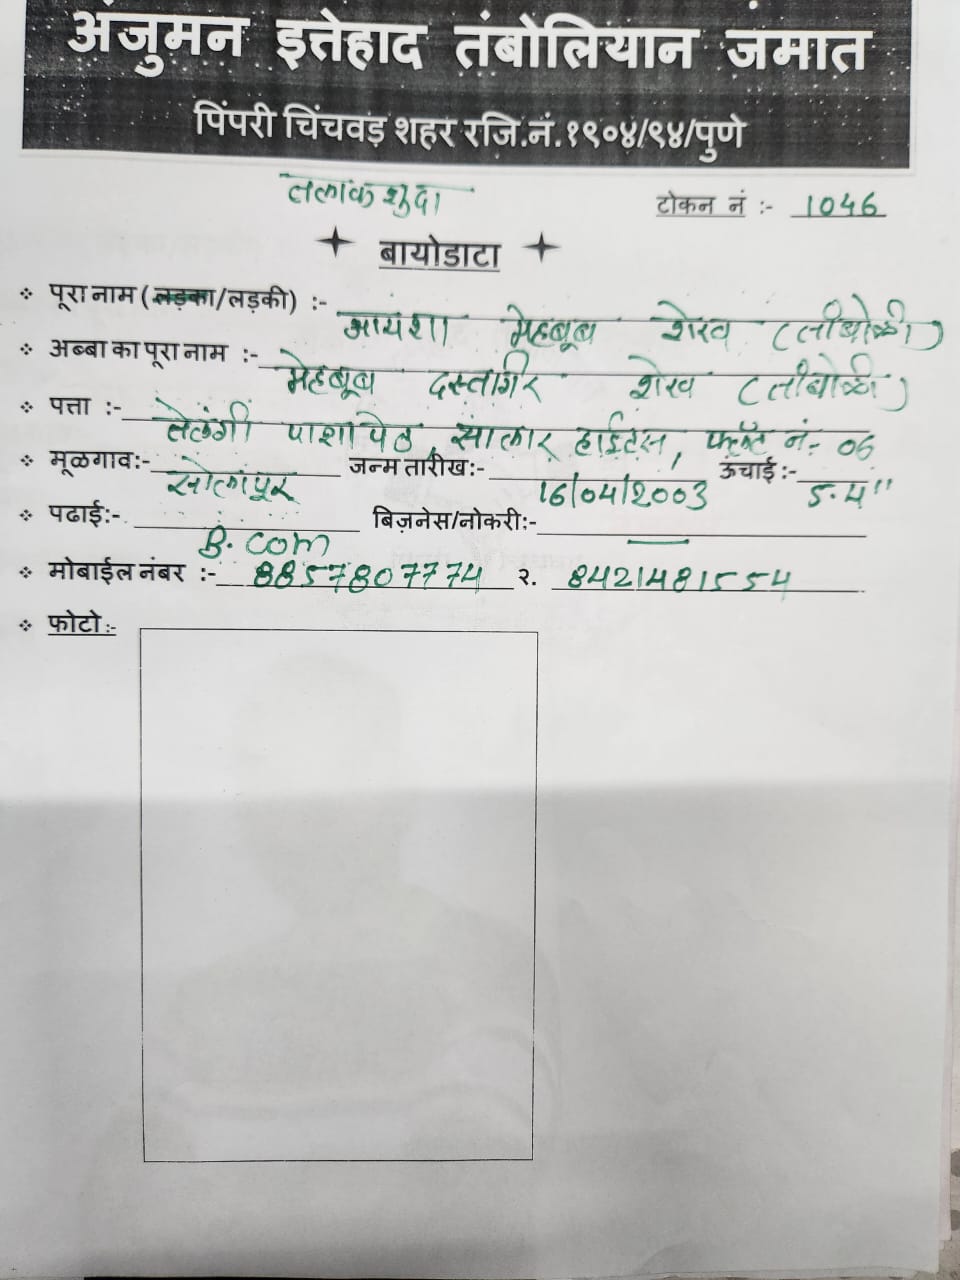 अंजुमन इत्तेहाद तंबोलियान जमात
पिंपरी चिंचवड़ शहर रजि.नं.१९०४/९४/पुणे
तलाकशुदा
टोकन नं :- 1046
बायोडाटा
पूरा नाम (लड़का/लड़की) :- आयशा मेहबूब शेख (तांबोळी)
अब्बा का पूरा नाम :- मेहबूब दस्तगिर शेख (तांबोळी)
पत्ता :- तेलंगी पाशा पेठ, सालार हाईट्स, फ्लॅट नं- 06
मूळगाव:- सोलापूर जन्म तारीख:- 16/04/2003 ऊचाई:- 5.4"
पढाई:- B.com बिज़नेस/नोकरी:- —
मोबाईल नंबर :- 8857807774 २. 8421481554
फोटो :-